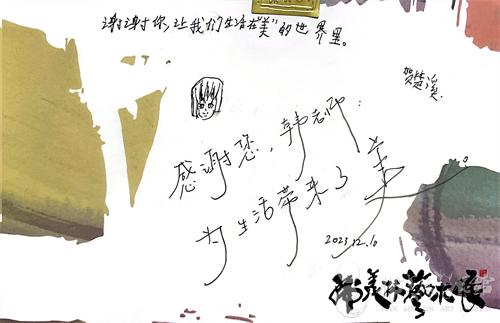 谢谢你,让我们生活在"美"的世界里。
贺楚溪
感谢您,韩老师:
为生活带来了美
2023.12.10
韩美林艺术展